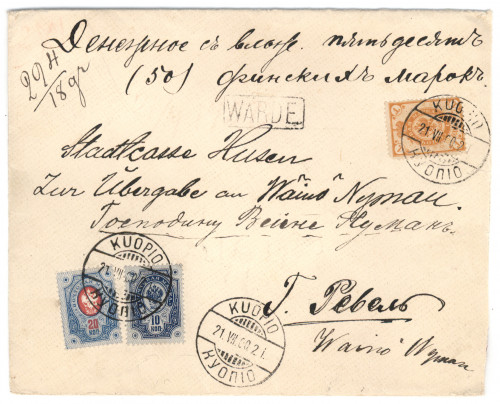 Денежное съ влож. пятьдесятъ
(50) финскихъ марокъ.
WARDE
KUOPIO
21.VII.00
КУОПІО
Stadtcasse Husen
Zur Übergabe an Wäinö Nyman.
Господину Вейне Нуманъ.
KUOPIO
21.VII.00
КУОПІО
20
КОП
10
КОП
KUOPIO
21.VII.00.2 i.
КУОПІО
Г. Ревель
Wäinö Nyman